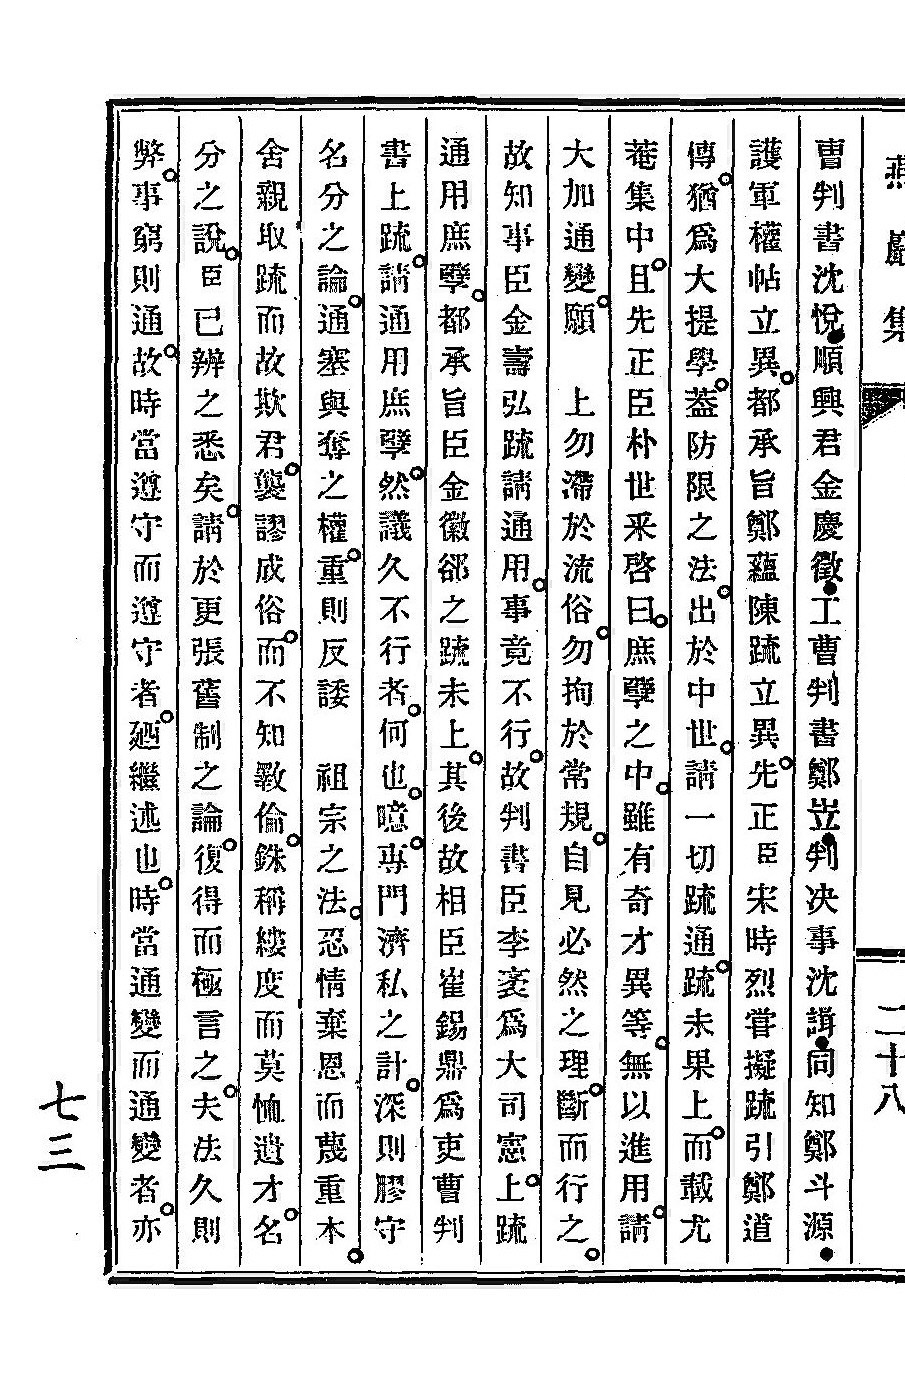 燕巖集
二十八
曹判書沈悅順興君金慶徵工曹判書鄭岦判决事沈諿同知鄭斗源
護軍權帖立異都承旨鄭蘊陳疏立異先正臣宋時烈嘗擬疏引鄭道
傳猶爲大提學蓋防限之法出於中世請一切疏通疏未果上而載尤
菴集中且先正臣朴世采啓曰庶孼之中雖有奇才異等無以進用請
大加通變願　上勿滯於流俗勿拘於常規自見必然之理斷而行之
故知事臣金壽弘疏請通用事竟不行故判書臣李袤爲大司憲上疏
通用庶孼都承旨臣金徽卻之疏未上其後故相臣崔錫鼎爲吏曹判
書上疏請通用庶孼然議久不行者何也噫專門濟私之計深則膠守
名分之論通塞與奪之權重則反諉　祖宗之法忍情棄恩而蔑重本
舍親取疏而故欺君襲謬成俗而不知斁倫銖稱縷度而莫恤遺才名
分之說臣已辨之悉矣請於更張舊制之論復得而極言之夫法久則
弊事窮則通故時當遵守而遵守者廼繼述也時當通變而通變者亦
七三